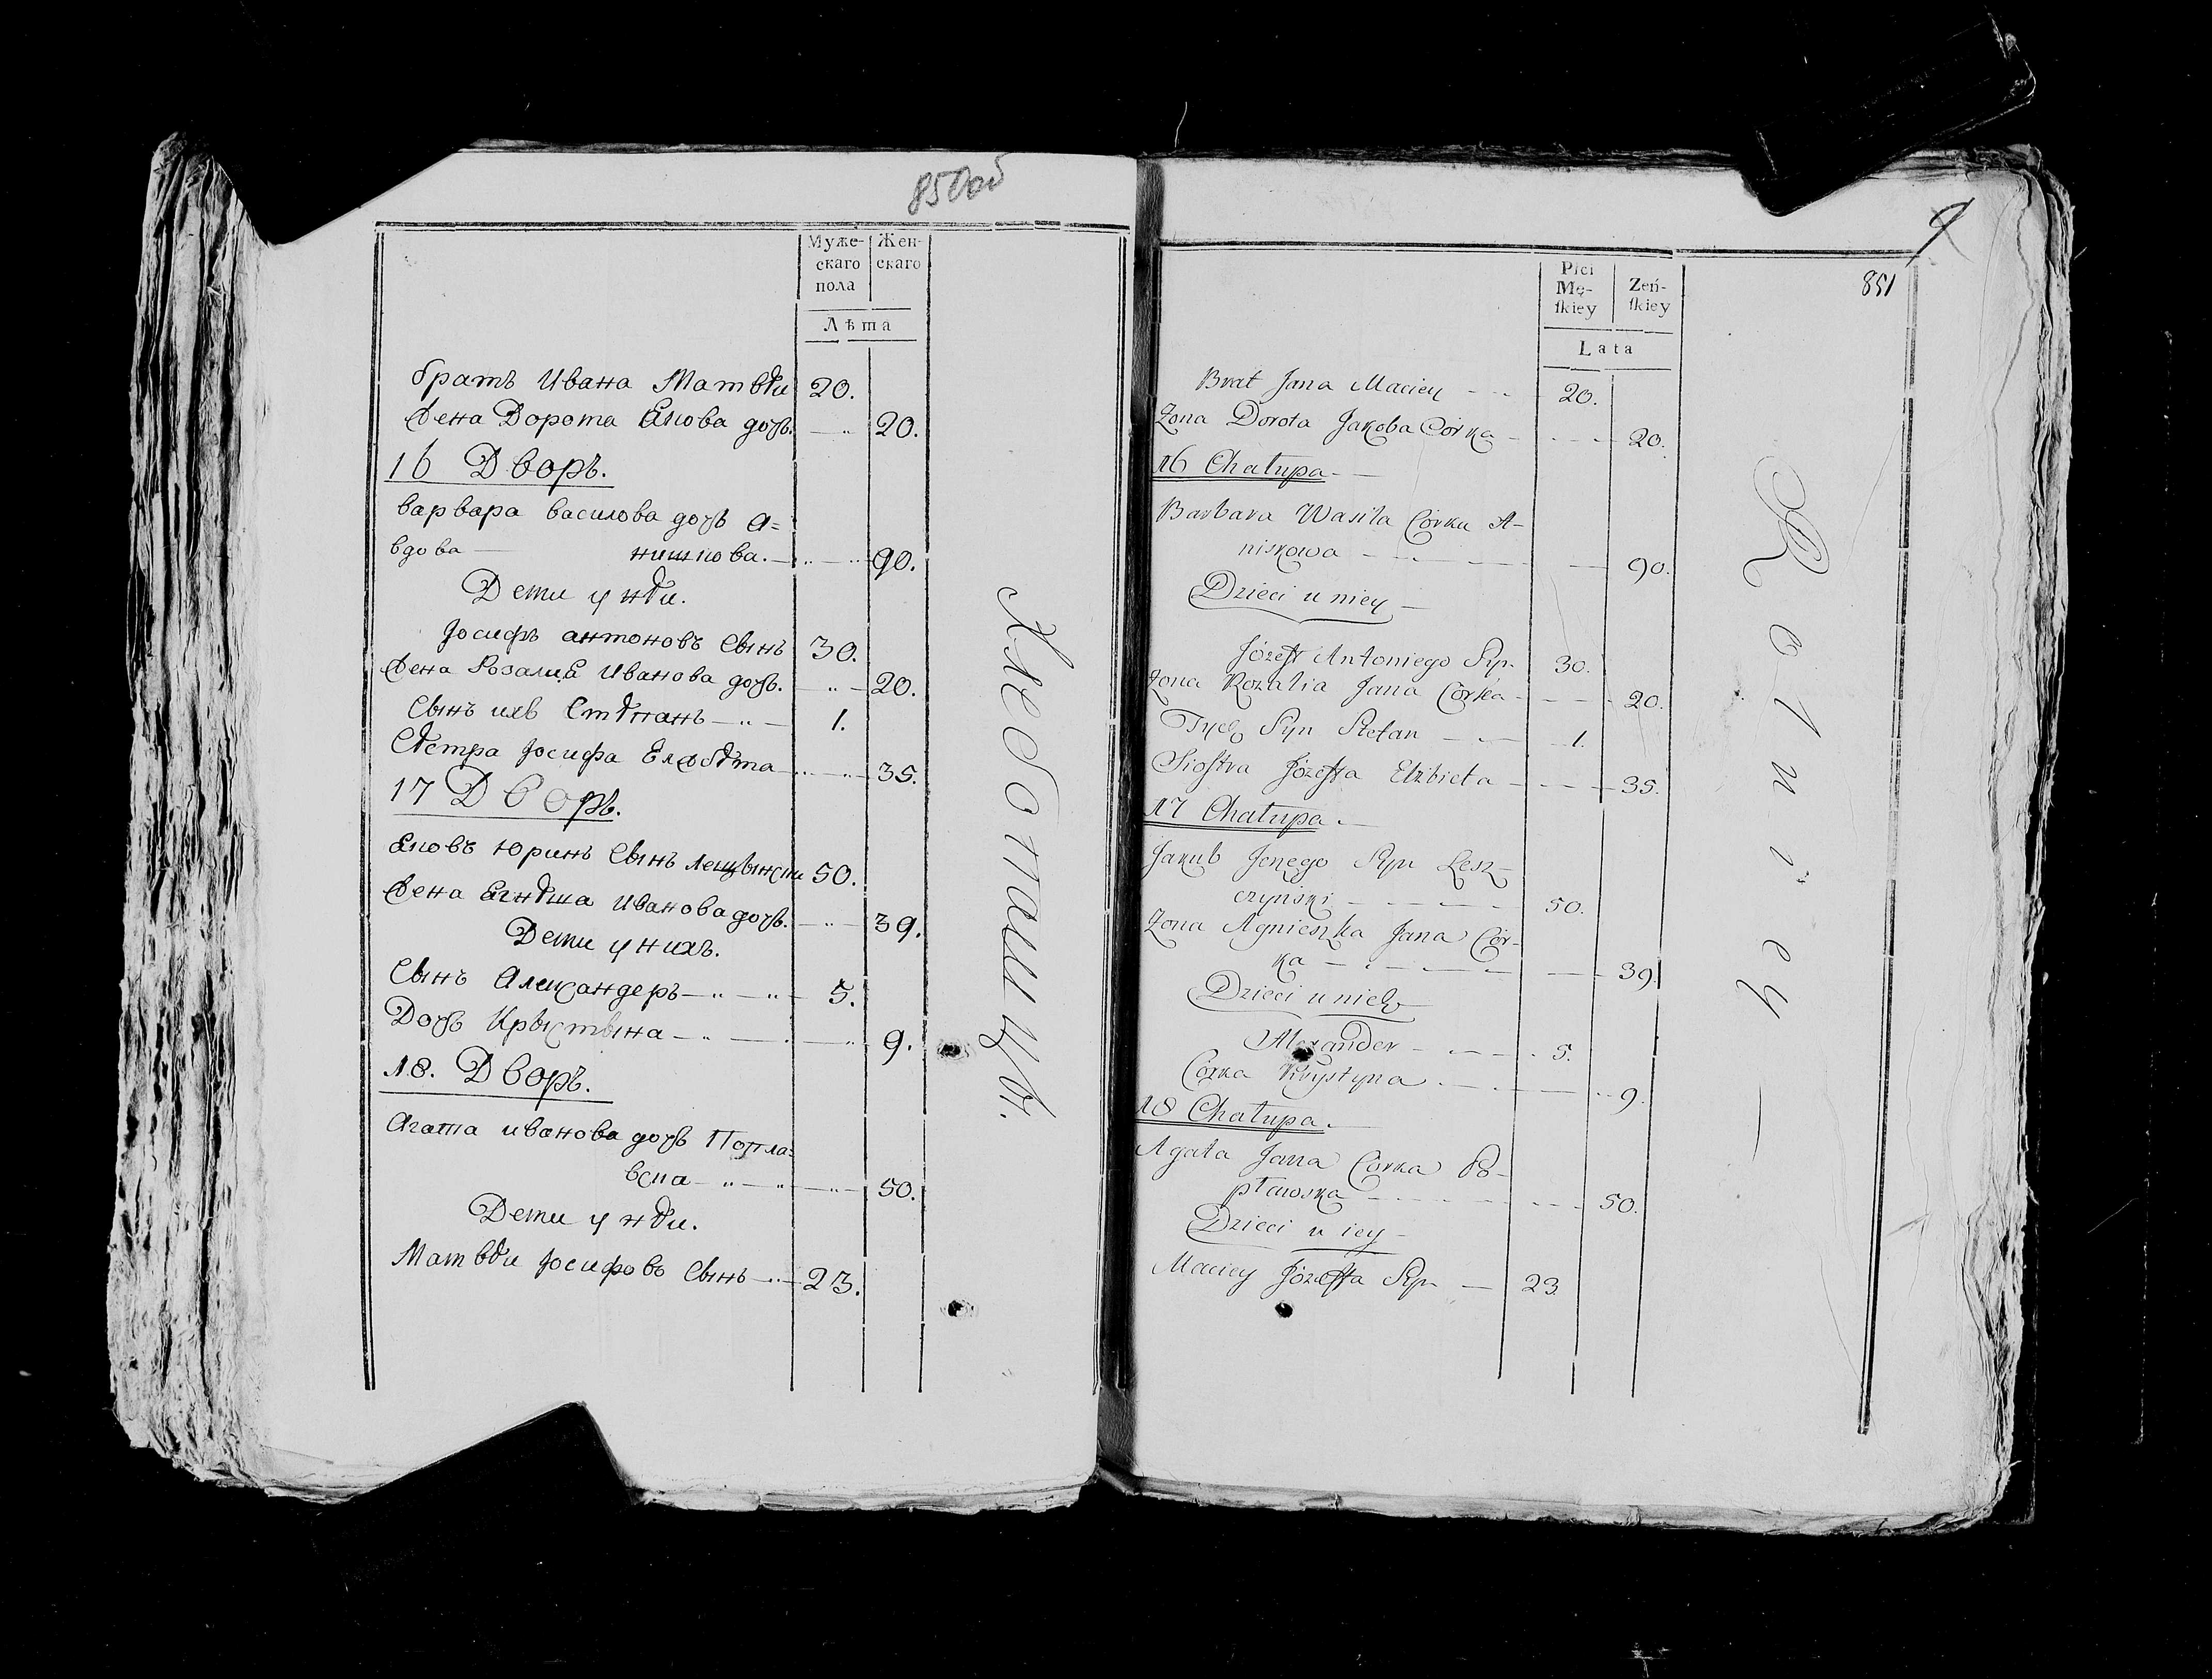 850об
Муже-
скаго
пола
Жен-
скаго
Лѣта
братъ Ивана Матвѣи 20.
Жена Дорота Якова дочь. 20.
16 Дворъ.
варвара василова дочь а=
вдова — нишкова. — 90.
Дети у нѣи.
Іосифъ антоновъ сынъ 30.
Жена Розалия Иванова дочь. 20.
Сынъ ихъ Стѣпанъ 1.
Сѣстра Іосифа Елжбѣта 35.
17 Дворъ.
Яковъ Юринъ сынъ Лещынски 50.
Жена Ягнѣша Иванова дочь. 39.
Дети у нихъ.
Сынъ Александеръ 5.
Дочь Крыстына 9.
18. Дворъ.
Агата иванова дочь Попла=
вска 50.
Дети у нѣи.
Матвѣи Іосифовъ сынъ 23.
Хлебопашцы.
9
851
Płci
Mę-
ſkiey
Zeń-
ſkiey
Lata
Brat Jana Maciey 20.
Zona Dorota Jakoba Córka 20.
16 Chałupa
Barbara Wasila Córka A-
niskowa 90.
Dzieci u niey
Józeff Antoniego Syn 30.
Zona Rozalia Jana Córka 20.
Tych Syn Stefan 1.
Siostra Józeffa Elżbieta 35.
17 Chałupa
Jakub Jerzego Syn Lesz-
czyński 50.
Zona Agnieszka Jana Cór-
ka 39.
Dzieci u nich
Alexander 5.
Córka Krystyna 9.
18 Chałupa
Agata Jana Córka Po-
pławska 50.
Dzieci u iey
Maciey Józeffa Syn 23.
Rolnicy